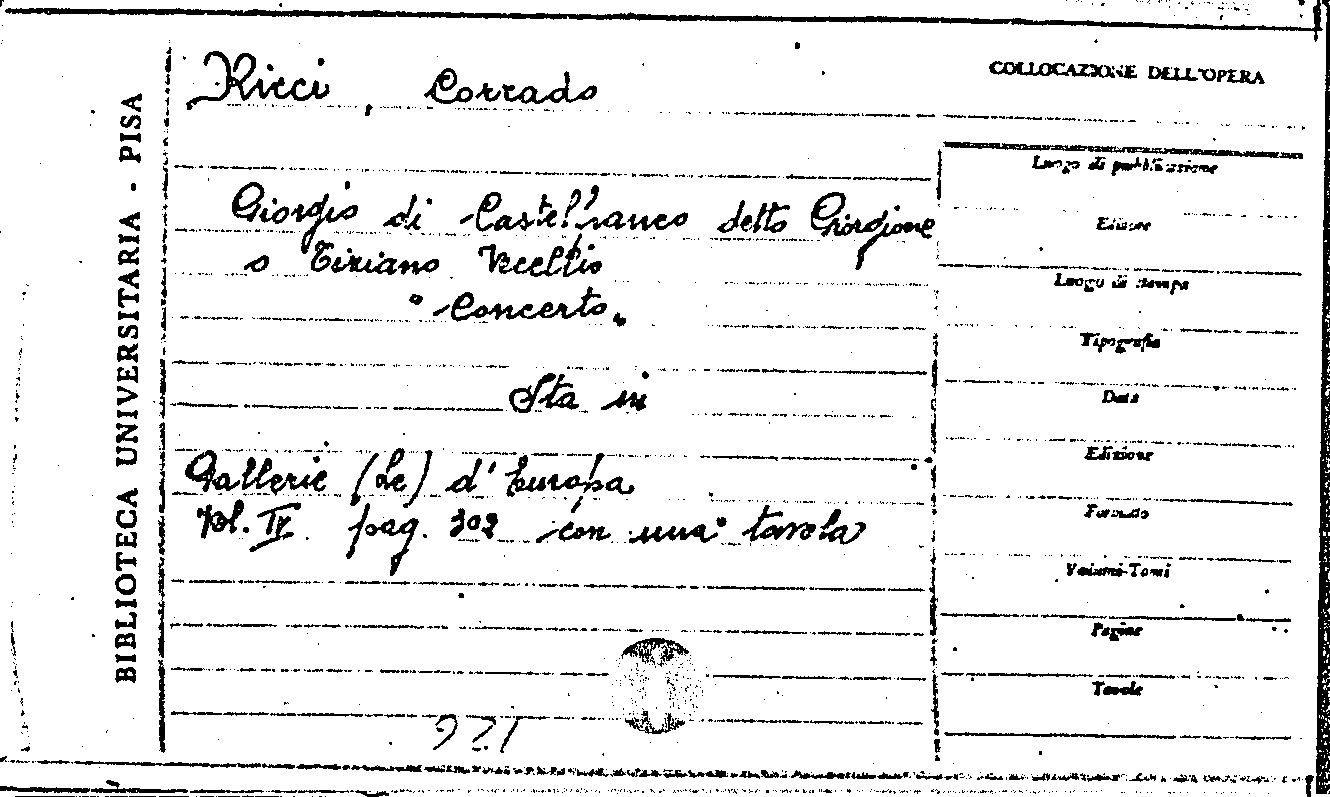 Ricci, Corrado
COLLOCAZIONE DELL'OPERA
BIBLIOTECA UNIVERSITARIA - PISA
Giorgio di Castelfranco detto Giorgione
o Tiziano Vecellio
"Concerto"
Sta in
Gallerie (Le) d'Europa
Vol. IV pag. 302 con una tavola
Luogo di pubblicazione
Editore
Luogo di stampa
Tipografia
Data
Edizione
Formato
Volumi-Tomi
Pagine
Tavole